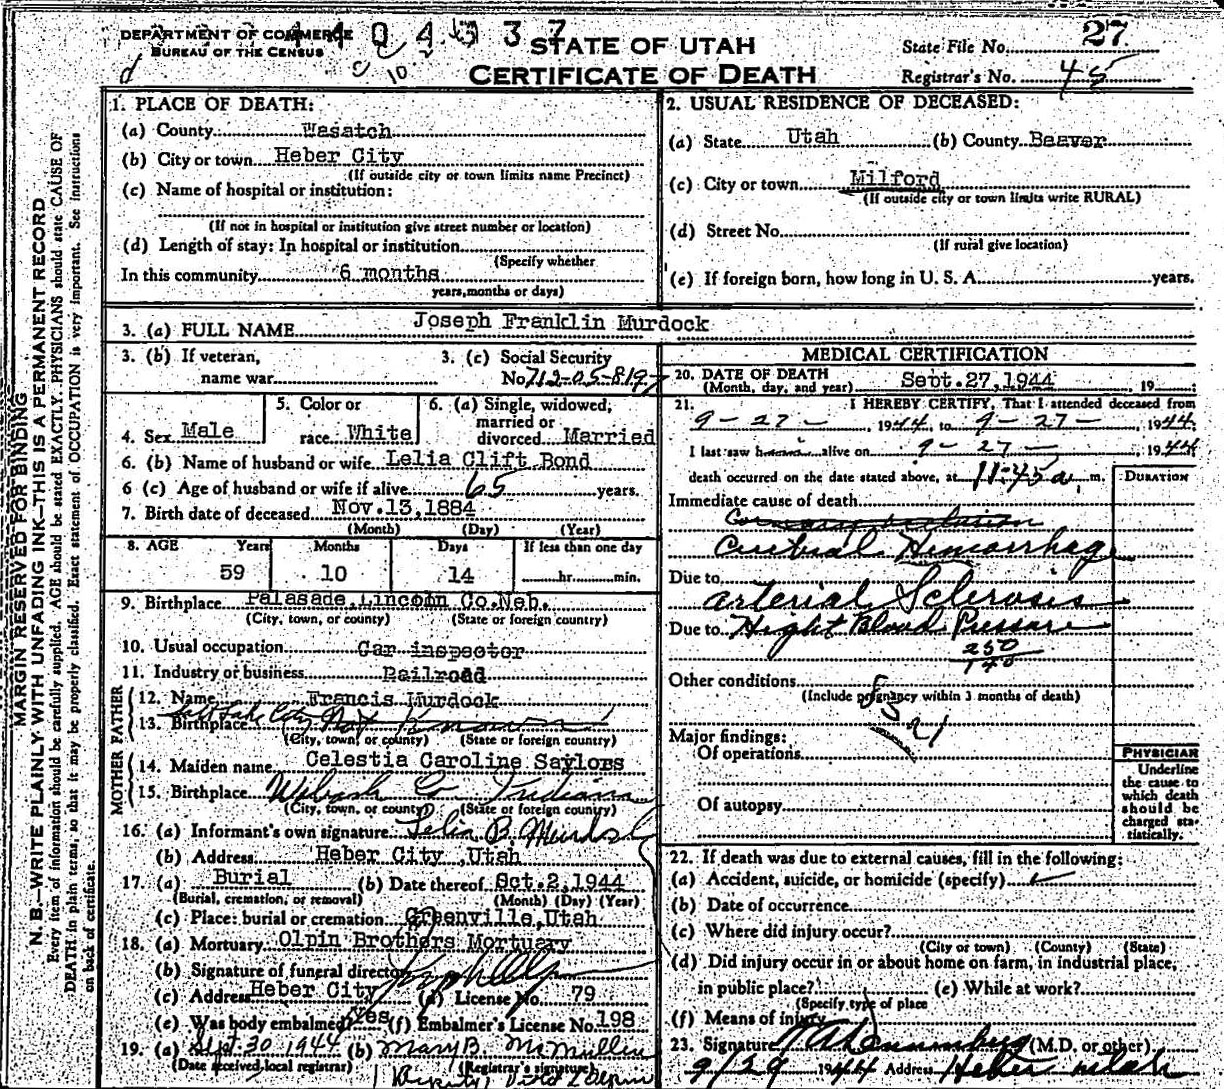 DEPARTMENT OF COMMERCE
BUREAU OF THE CENSUS
STATE OF UTAH
CERTIFICATE OF DEATH
State File No. 27
Registrar's No. 45
MARGIN RESERVED FOR BINDING
N. B.—WRITE PLAINLY WITH UNFADING INK—THIS IS A PERMANENT RECORD
Every item of information should be carefully supplied. AGE should be stated EXACTLY. PHYSICIANS should state CAUSE OF
DEATH in plain terms, so that it may be properly classified. Exact statement of OCCUPATION is very important. See instructions
on back of certificate.
1. PLACE OF DEATH:
(a) County Wasatch
(b) City or town Heber City
(If outside city or town limits name Precinct)
(c) Name of hospital or institution:
(If not in hospital or institution give street number or location)
(d) Length of stay: In hospital or institution
(Specify whether
In this community 6 months
years, months or days)
2. USUAL RESIDENCE OF DECEASED:
(a) State Utah (b) County Beaver
(c) City or town Milford
(If outside city or town limits write RURAL)
(d) Street No.
(If rural give location)
(e) If foreign born, how long in U. S. A. years.
3. (a) FULL NAME Joseph Franklin Murdock
3. (b) If veteran,
name war
3. (c) Social Security
No. 712-05-8197
4. Sex Male
5. Color or
race White
6. (a) Single, widowed,
married or
divorced Married
6. (b) Name of husband or wife Lelia Clift Bond
6 (c) Age of husband or wife if alive 65 years.
7. Birth date of deceased Nov.13,1884
(Month) (Day) (Year)
8. AGE Years Months Days If less than one day
59 10 14 hr. min.
9. Birthplace Palasade, Lincoln Co.Neb.
(City, town, or county) (State or foreign country)
10. Usual occupation Car inspector
11. Industry or business Railroad
FATHER
12. Name Francis Murdock
13. Birthplace Salt Lake City Not Known
(City, town, or county) (State or foreign country)
MOTHER
14. Maiden name Celestia Caroline Saylors
15. Birthplace Wabash Co Indiana
(City, town, or county) (State or foreign country)
16. (a) Informant's own signature Lelia B. Murdock
(b) Address Heber City, Utah
17. (a) Burial (b) Date thereof Oct.2,1944
(Burial, cremation, or removal) (Month) (Day) (Year)
(c) Place: burial or cremation Greenville, Utah
18. (a) Mortuary Olpin Brothers Mortuary
(b) Signature of funeral director
(c) Address Heber City (d) License No. 79
(e) Was body embalmed? Yes (f) Embalmer's License No. 198
19. (a) Sept 30 1944 (b) Mary B. McMullin
(Date received local registrar) (Registrar's signature)
MEDICAL CERTIFICATION
20. DATE OF DEATH
(Month, day, and year) Sept.27,1944 , 19 ;
21. I HEREBY CERTIFY, That I attended deceased from
9-27- , 1944, to 9-27- , 1944,
I last saw h alive on 9-27- , 1944
death occurred on the date stated above, at 11:45 a. m.
DURATION
Immediate cause of death
Coronary occlusion
Cerebral Hemorrhage
Due to
Arterial Sclerosis
Due to Hight Blood Pressure
250
140
Other conditions
(Include pregnancy within 3 months of death)
Major findings:
Of operations
Of autopsy
PHYSICIAN
Underline
the cause to
which death
should be
charged sta-
tistically.
22. If death was due to external causes, fill in the following:
(a) Accident, suicide, or homicide (specify)
(b) Date of occurrence
(c) Where did injury occur?
(City or town) (County) (State)
(d) Did injury occur in or about home on farm, in industrial place,
in public place? (e) While at work?
(Specify type of place
(f) Means of injury
23. Signature (M.D. or other)
9/29 1944 Address Heber Utah